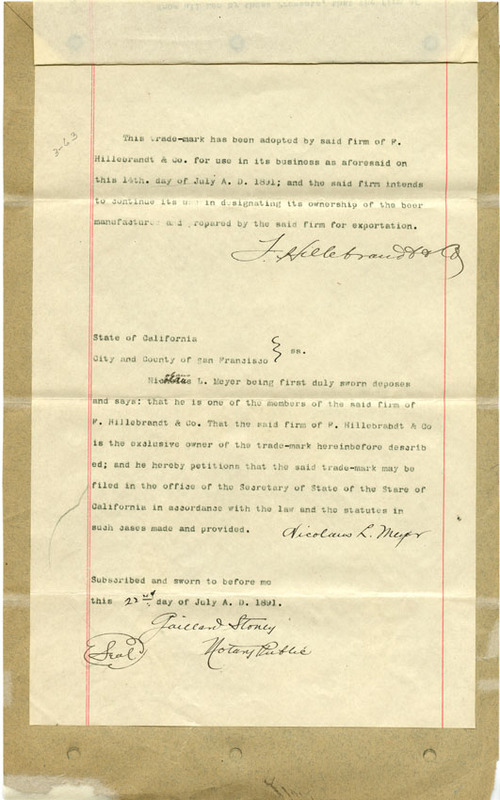 3-63
This trade-mark has been adopted by said firm of F.
Hillebrandt & Co. for use in its business as aforesaid on
this 14th. day of July A. D. 1891; and the said firm intends
to continue its use in designating its ownership of the beer
manufactured and prepared by the said firm for exportation.
F. Hillebrandt & Co
State of California
City and County of San Francisco } ss.
L. Meyer being first duly sworn deposes
and says: that he is one of the members of the said firm of
F. Hillebrandt & Co. That the said firm of F. Hillebrandt & Co
is the exclusive owner of the trade-mark hereinbefore describ
ed; and he hereby petitions that the said trade-mark may be
filed in the office of the Secretary of State of the Stare of
California in accordance with the law and the statutes in
such cases made and provided.
Nicolaus L. Meyer
Subscribed and sworn to before me
this 22nd day of July A. D. 1891.
Gaillard Stoney
(Seal) Notary Public